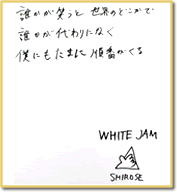 誰かが笑うと 世界のどこかで
誰かが代わりになく
僕にもたまに順番がくる
WHITE JAM
SHIROSE